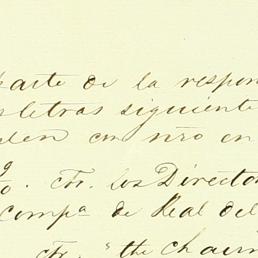 parte de la respon
letras siguiente
den con nro en
9
o. Sr. los Director
Compa de Real del
Sr. "the Chair